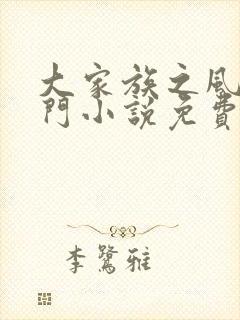 大家族之風
門小說免費
李鷺雅